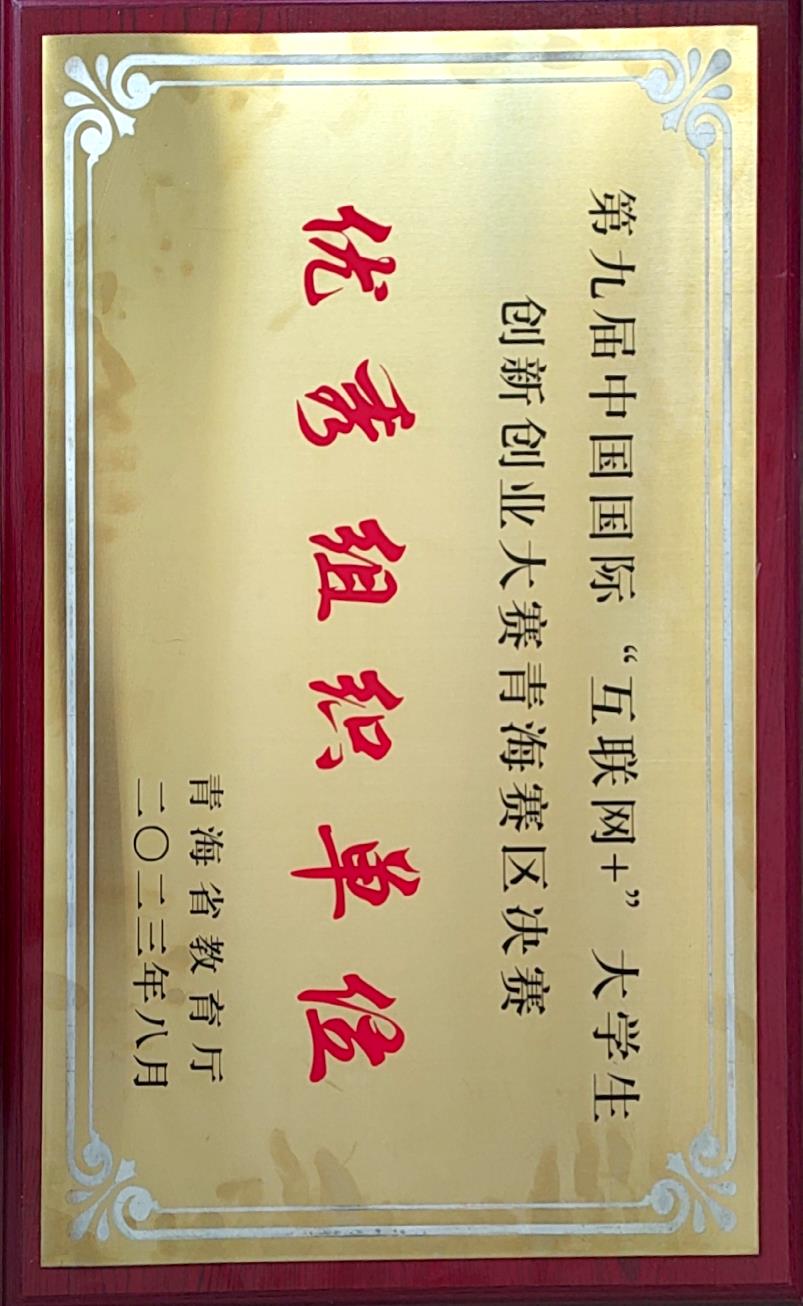 第九届中国国际“互联网+”大学生
创新创业大赛青海赛区决赛
优秀组织单位
青海省教育厅
二〇二三年八月